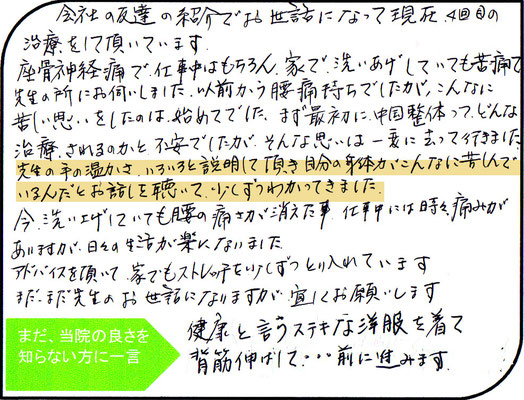 会社の友達の紹介でお世話になって現在、4回目の
治療をして頂いています。
座骨神経痛で、仕事中はもちろん、家で、洗いあげしていても苦痛で
先生の所にお伺いしました。以前から腰痛持ちでしたが、こんなに
苦しい思いをしたのは始めてでした。まず最初に、中国整体って、どんな
治療、されるのかと不安でしたが、そんな思いは一変に去って行きました
先生の手の温かさ、いろいろと説明して頂き自分の身体がこんなに苦しんで
いるんだとお話しを聴いて、少しずつわかってきました。
今、洗い上げしていても腰の痛さが消えた事、仕事中には時々痛みが
ありますが、日々の生活が楽になりました
アドバイスを頂いて、家でもストレッチを少しずつとり入れています
まだまだ先生のお世話になりますが、宜しくお願いします
まだ、当院の良さを
知らない方に一言
健康と言うステキな洋服を着て
背筋伸ばして・・・前に進みます。